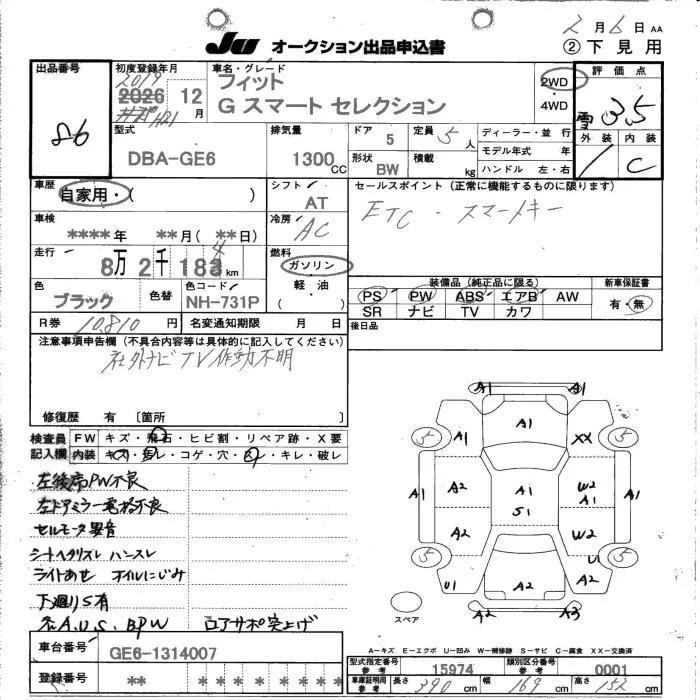 2月6日 AA
JU オークション出品申込書 ②下見用
出品番号 86
初度登録年月 2019 2026 12月 H21
車名・グレード フィット
G スマート セレクション
2WD
4WD
評価点 3.5
外装 内装 C
型式 DBA-GE6
排気量 1300 CC
ドア 5
定員 5 人
形状 BW
積載 kg
ディーラー・並行
モデル年式 年
ハンドル 左・右
車歴 自家用・( )
シフト AT
セールスポイント(正常に機能するものに限ります)
ETC・スマートキー
車検 ****年 **月(**日)
冷房 AC
走行 8万2千183 4 km
燃料 ガソリン
軽油
( )
色 ブラック
色替
色コード NH-731P
装備品(純正品に限る)
PS PW ABS エアB AW
SR ナビ TV カワ
新車保証書 有・無
R券 10,810 円
名変通知期限 月 日
後日品
注意事項申告欄(不具合内容等は具体的に記入してください)
社外ナビTV作動不明
修復歴 有 〔箇所 〕
検査員記入欄
FW キズ・飛石・ヒビ割・リペア跡・X要
内装 キズ・コゲ・穴・キレ・破レ
左後席PW不良
左ドアミラー電格不良
セルモータ異音
シートヘタリスレ ハンスレ
ライトあせ オイルにじみ
下廻りS有
A.U.S、BPW ロアサポ突上げ
A1 A1
A1
A1 XX
5 5
A1 A2 A1 S1 W2 A1 A1
A2 W2
5 5
U1 A2 U1 A2
A2 A3
スペア
A-キズ E-エクボ U-凹み W-補修跡 S-サビ C-腐食 XX-交換済
車台番号 GE6-1314007
登録番号 ** * * * * * * *
型式指定番号 参考 15974
類別区分番号 参考 0001
車庫証明用 参考 長さ 390 cm 幅 169 cm 高さ 152 cm